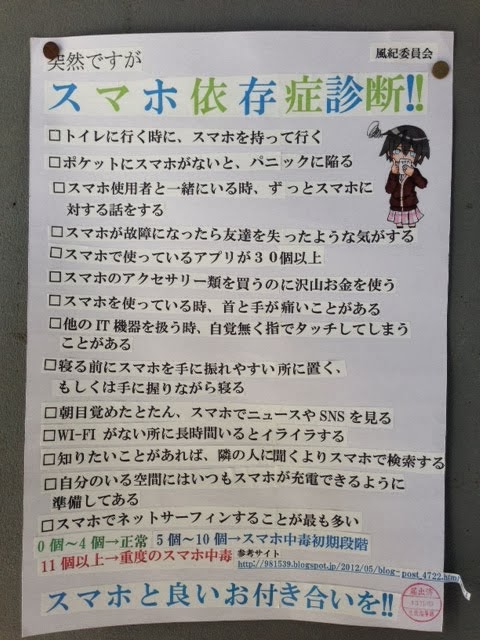 突然ですが
風紀委員会
スマホ依存症診断!!
□トイレに行く時に、スマホを持って行く
□ポケットにスマホがないと、パニックに陥る
□スマホ使用者と一緒にいる時、ずっとスマホに
対する話をする
□スマホが故障になったら友達を失ったような気がする
□スマホで使っているアプリが30個以上
□スマホのアクセサリー類を買うのに沢山お金を使う
□スマホを使っている時、首と手が痛いことがある
□他のIT機器を扱う時、自覚無く指でタッチしてしまう
ことがある
□寝る前にスマホを手に振れやすい所に置く、
もしくは手に握りながら寝る
□朝目覚めたとたん、スマホでニュースやSNSを見る
□WI-FIがない所に長時間いるとイライラする
□知りたいことがあれば、隣の人に聞くよりスマホで検索する
□自分のいる空間にはいつもスマホが充電できるように
準備してある
□スマホでネットサーフィンすることが最も多い
0個～4個→正常 5個～10個→スマホ中毒初期段階
11個以上→重度のスマホ中毒 参考サイト
http://981539.blogspot.jp/2012/05/blog-post_4722.html
スマホと良いお付き合いを!!